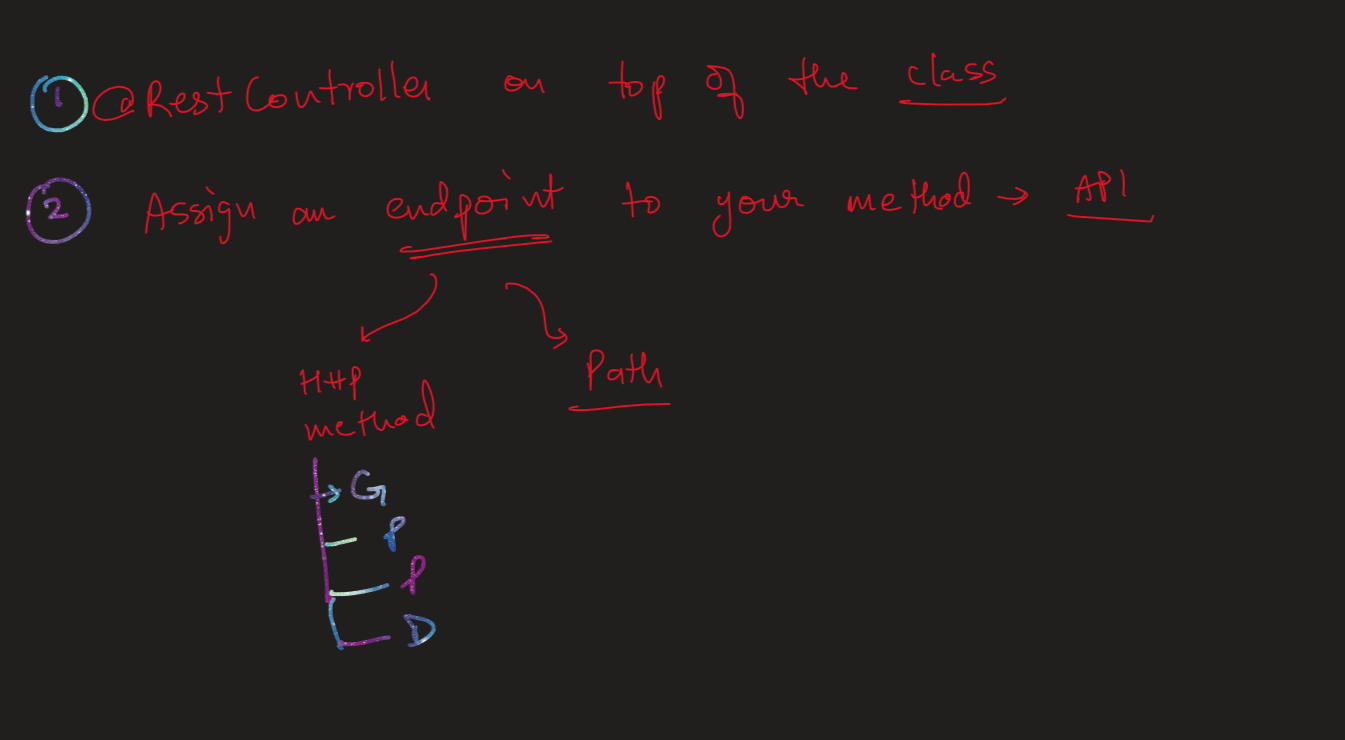 1 @RestController on top of the class
2 Assign an endpoint to your method → API
Http
method
Path
G
P
P
D